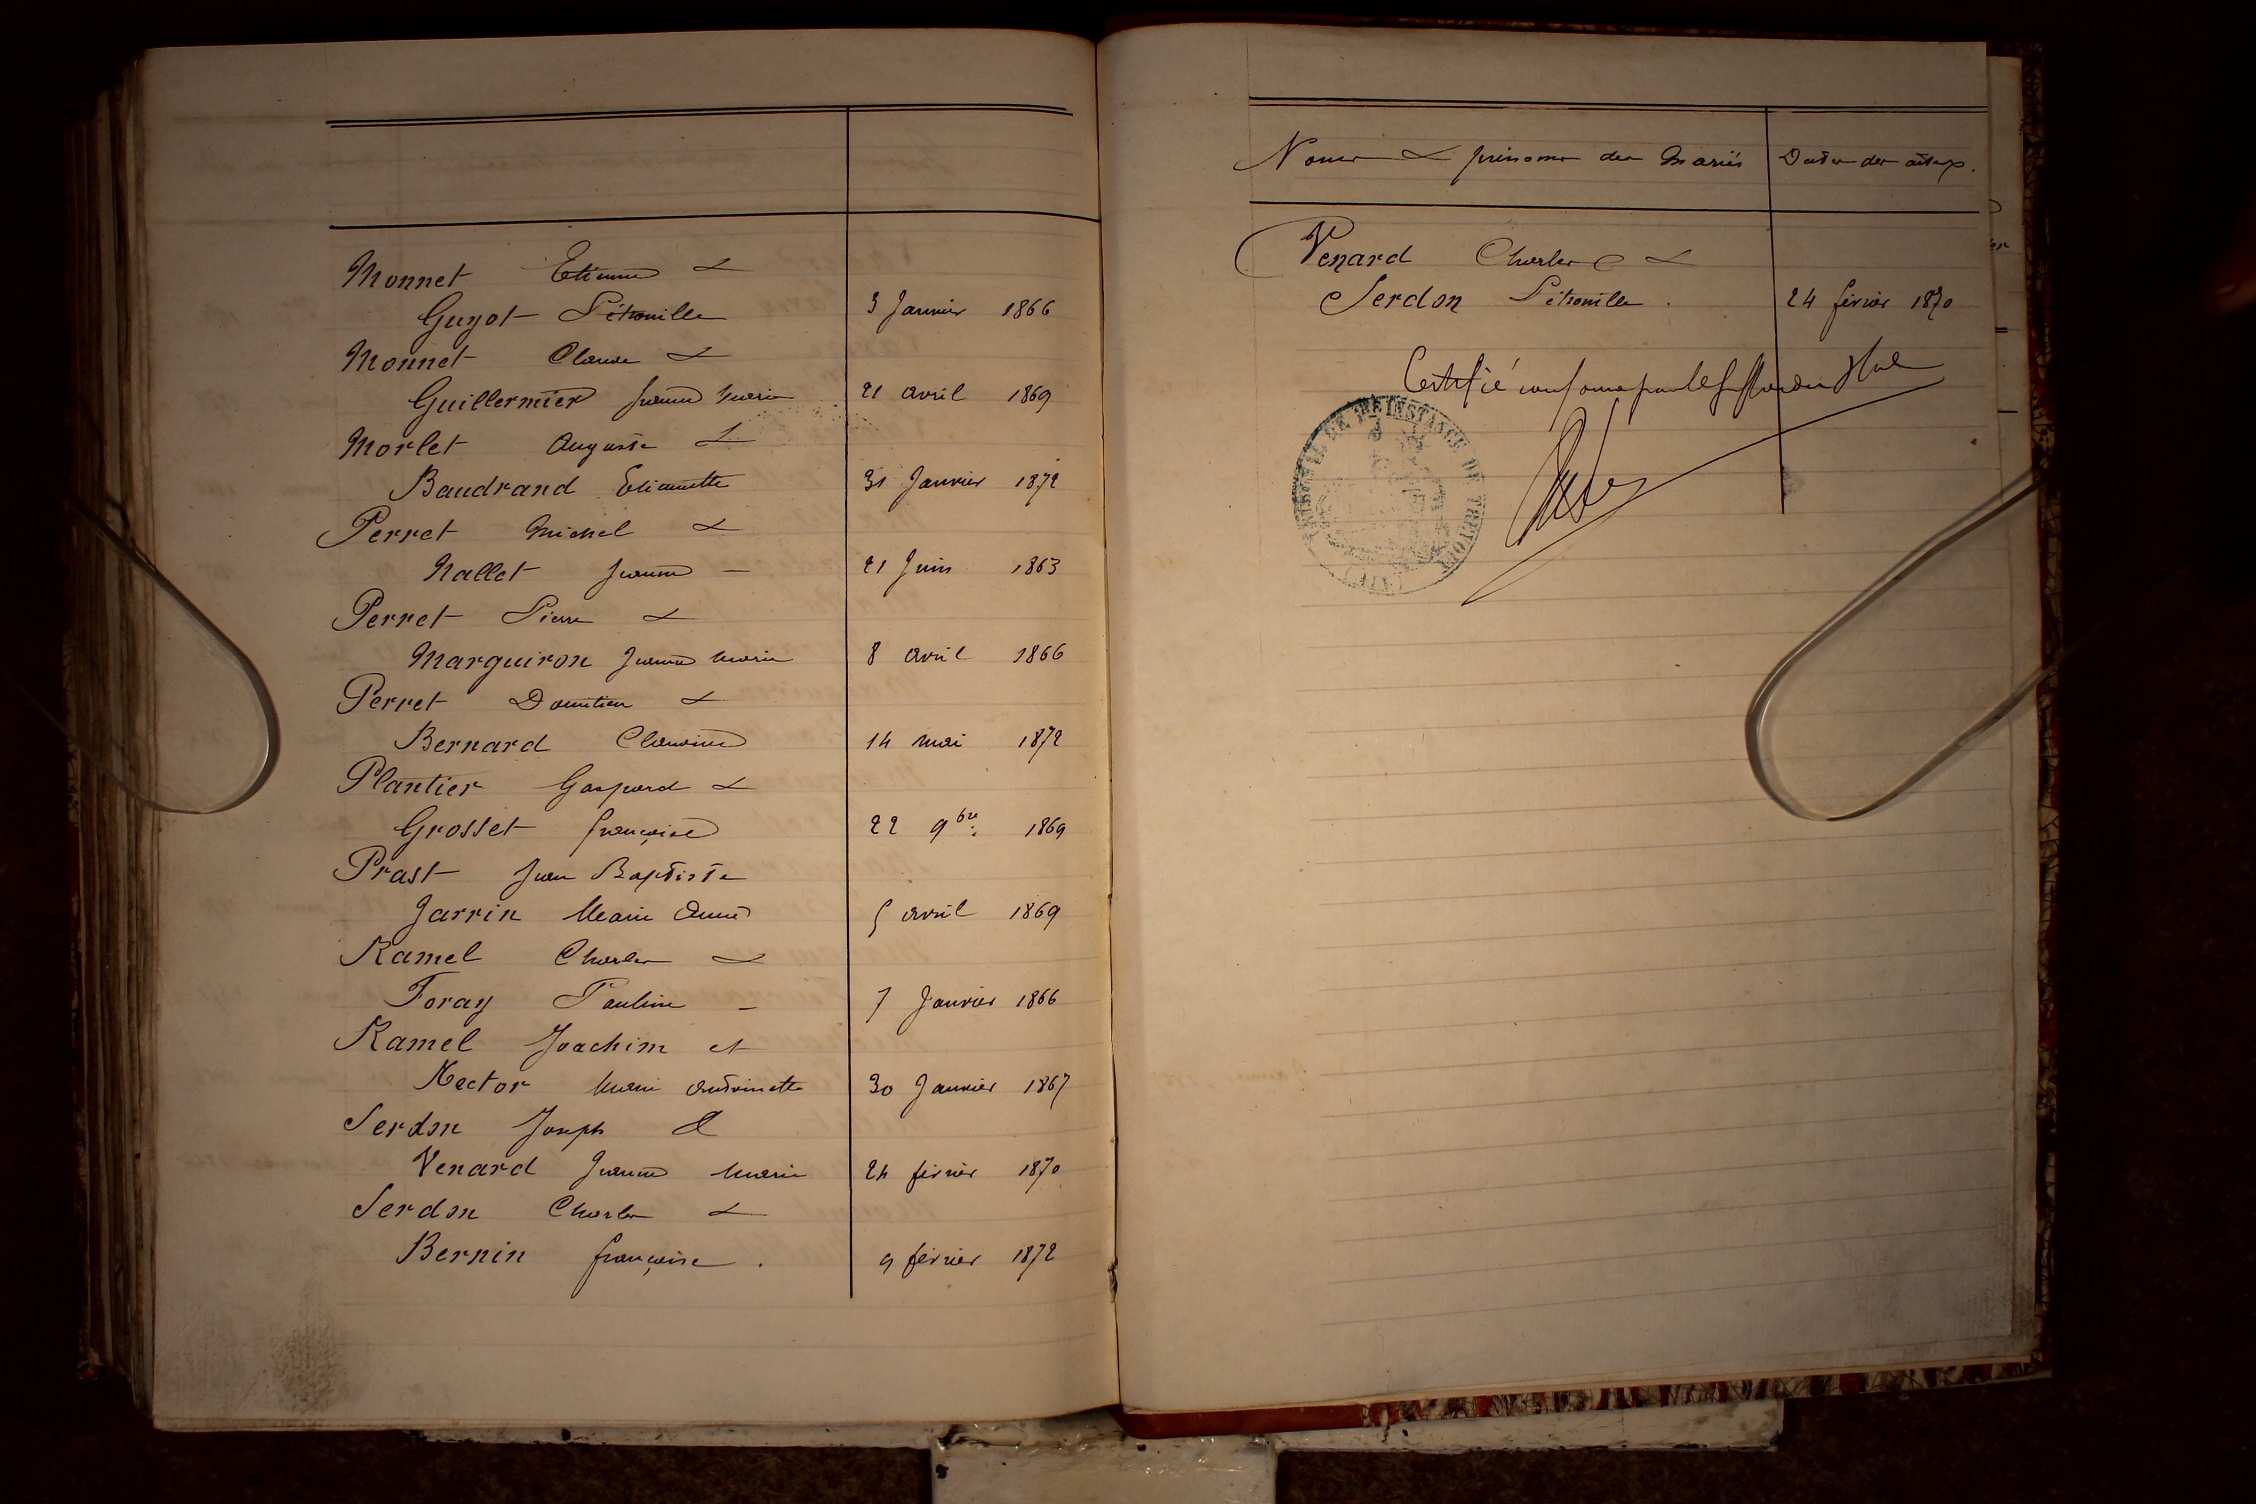 Monnet Etienne &
Guyot Pétronille 3 Janvier 1866
Monnet Claude &
Guillermier Jeanne Marie 21 avril 1869
Morlet Auguste &
Baudrand Etiennette 31 Janvier 1872
Perret Michel &
Nallet Jeanne — 21 Juin 1863
Perret Pierre &
Marguiron Jeanne Marie 8 avril 1866
Perret Domitien &
Bernard Claudine 14 mai 1872
Plantier Gaspard &
Grosset françoise 22 9bre 1869
Prast Jean Baptiste
Jarrin Marie Anne 5 avril 1869
Ramel Charles &
Foray Pauline — 7 Janvier 1866
Ramel Joachim et
Nector Marie Antoinette 30 Janvier 1867
Serdon Joseph &
Venard Jeanne Marie 24 février 1870
Serdon Charles &
Bernin françoise . 9 février 1872
Noms & prénoms des Mariés Dates des actes.
Venard Charles &
Serdon Pétronille . 24 février 1870
Certifié conforme par le
TRIBUNAL DE 1RE INSTANCE DE TREVOUX
(AIN)